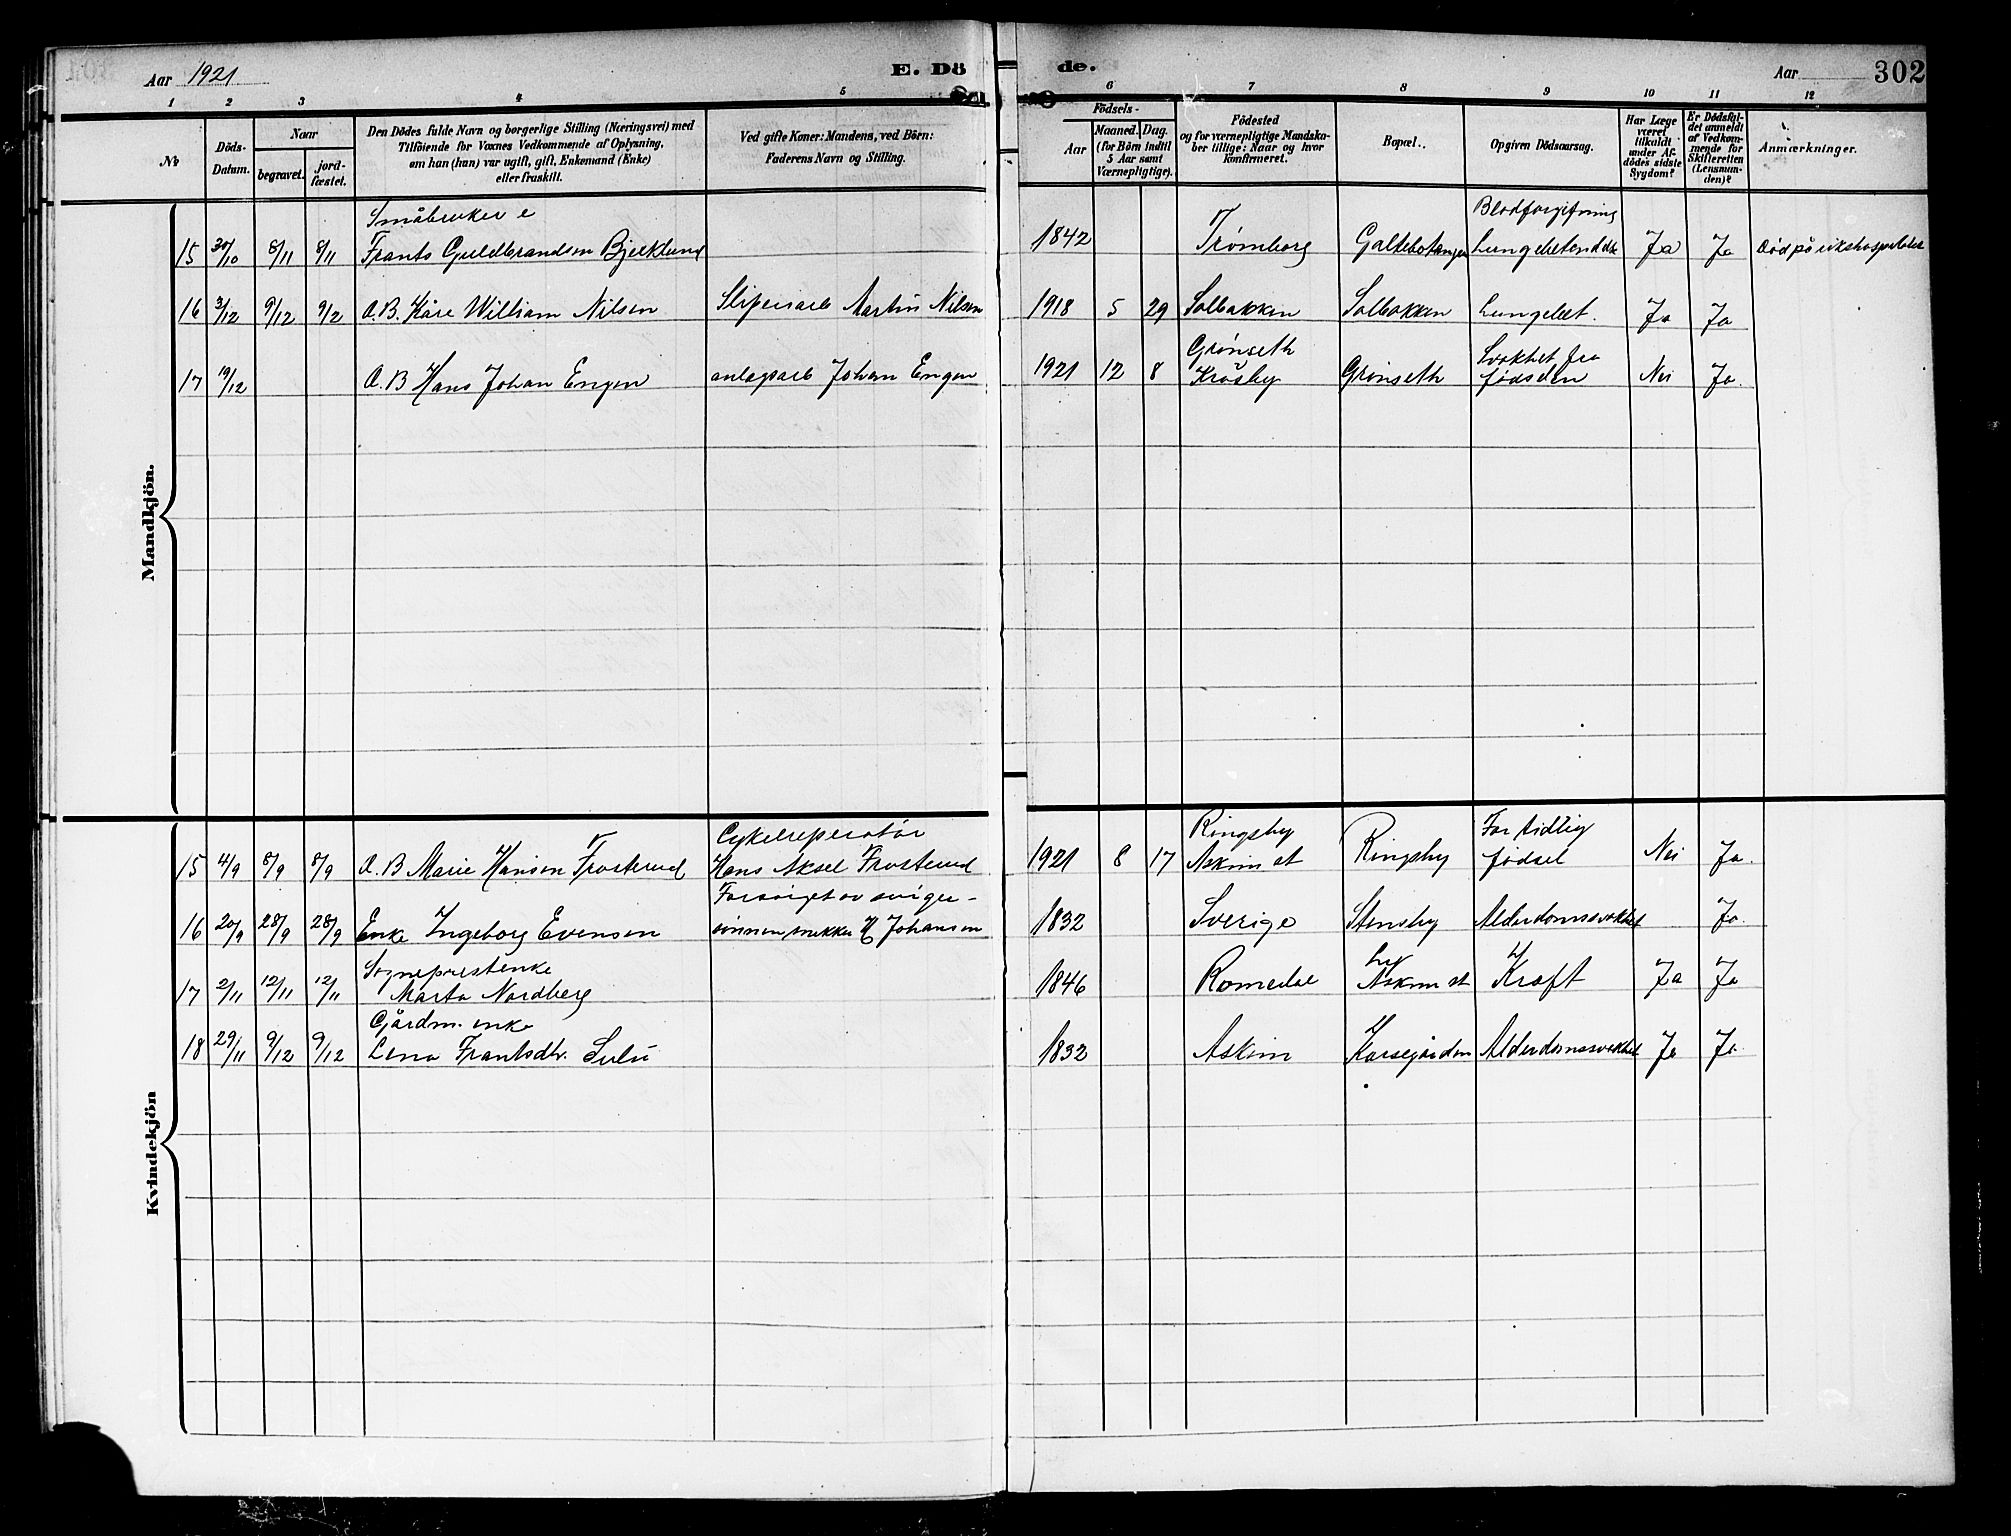 Aar 1921
E. Dö
de.
Aar
302
1 2 3 4 5 6 7 8 9 10 11 12
No
Döds-Datum.
Naar
begravet.
jord-fæstet.
Den Dödes fulde Navn og borgerlige Stilling (Næringsvei) med
Tilföiende for Voxnes Vedkommende af Oplysning,
om han (hun) var ugift, gift, Enkemand (Enke)
eller fraskilt.
Ved gifte Koner: Mandens, ved Börn:
Faderens Navn og Stilling.
Födsels-
Aar
Maaned. Dag.
(for Börn indtil
5 Aar samt
Værnepligtige).
Födested
og for værnepligtige Mandska-
ber tillige: Naar og hvor
konfirmeret.
Bopæl.
Opgiven Dödsaarsag.
Har Læge
været
tilkaldt
under Af-
dödes sidste
Sygdom?
Er Dödsfal-
det anmeldt
af Vedkom-
mende for
Skifteretten
(Lensman-
den)?
Anmærkninger.
Mandkjön.
Småbruker e Blodforgiftning
15 30/10 8/11 8/11 Frants Guldbrandsen Bjerklund 1842 Trømborg Galtebotangen Lungebetendelse Ja Ja Død på rikshospitalet
16 3/12 9/12 9/12 A.B. Kåre William Nilsen Sliperiarb Martin Nilsen 1918 5 29 Solbakken Solbakken Lungebet. Ja Ja
Grønseth Svakhet fra
17 19/12 A.B Hans Johan Engen anlægsarb Johan Engen 1921 12 8 Kråsby Grønseth fødselen Nei Ja.
Kvindekjön
Cykelreperatör Ringsby For tidlig
15 4/9 8/9 8/9 A.B Marie Hansen Frosterud Hans Aksel Frosterud 1921 8 17 Askim st Ringsby fødsel Nei Ja.
Forsørget av sviger-
16 20/9 28/9 28/9 Enke Ingeborg Evensen sønnen snekker H Johansen 1832 Sverige Stensby Alderdomssvakhet Ja.
Sogneprestenke
17 2/11 12/11 12/11 Marta Nordberg 1846 Romedal Askim st Kræft Ja Ja
Gårdm. enke
18 29/11 9/12 9/12 Lena Frantsdtr. Sulu 1832 Askim Korsegården Alderdomssvakhet Ja Ja